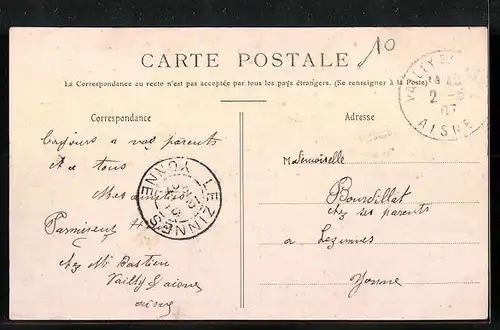 10
CARTE POSTALE
La Correspondance au recto n'est pas acceptée par tous les pays étrangers. (Se renseigner à la Poste)
Correspondance
Adresse
AISNE
07
à vos parents
et a tous
Mes amitiés
chez Mr Bastien
Vailly s/ aisne
aisne
LEZINNES
YONNE
Mademoiselle
Bourdillat
chez ses parents
a Lezinnes
Yonne